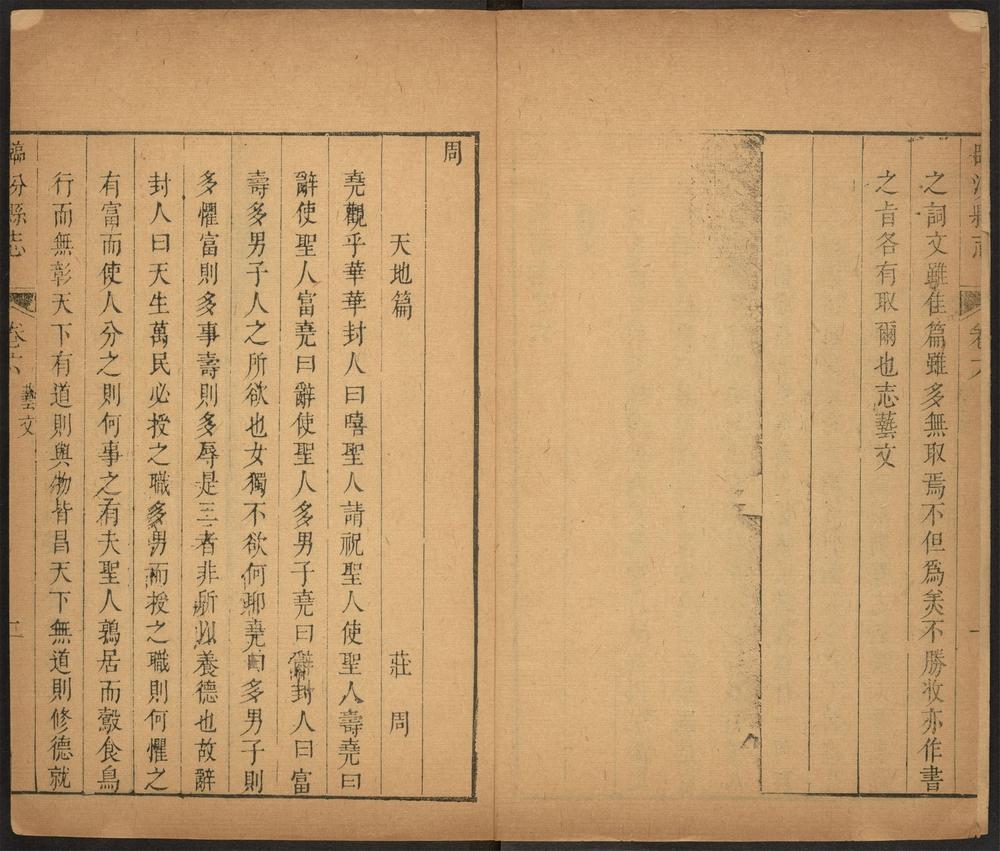 臨汾縣志
卷六
一
之詞文雖佳篇雖多無取焉不但爲美不勝收亦作書
之旨各有取爾也志藝文
周
天地篇 莊周
堯觀乎華華封人曰嘻聖人請祝聖人使聖人壽堯曰
辭使聖人富堯曰辭使聖人多男子堯曰辭封人曰富
壽多男子人之所欲也女獨不欲何耶堯曰多男子則
多懼富則多事壽則多辱是三者非所以養德也故辭
封人曰天生萬民必授之職多男而授之職則何懼之
有富而使人分之則何事之有夫聖人鶉居而鷇食鳥
行而無彰天下有道則與物皆昌天下無道則修德就
臨汾縣志
卷六
藝文
二